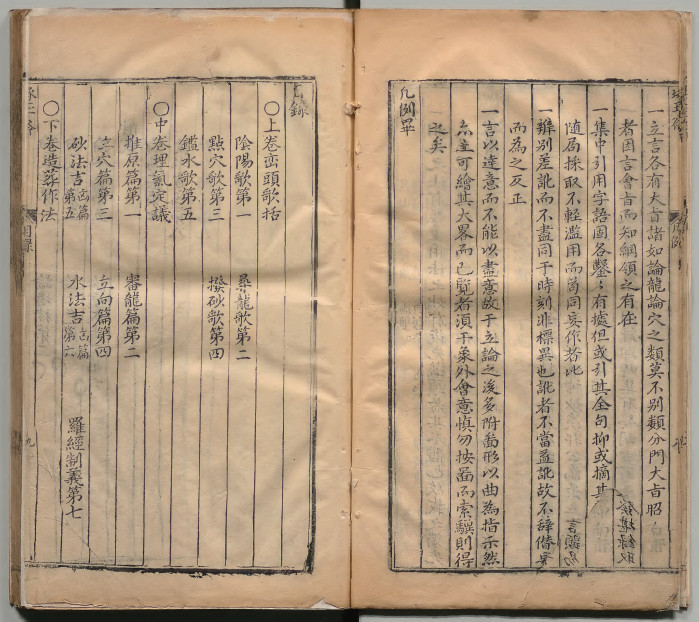 一立言各有大旨諸如論龍論穴之類莫不别類分門大旨昭
者因言會旨而知綱領之有在
一集中引用字語固各鑿〻有據但或引其全句抑或摘其
隨局採取不輕濫用而苟同妄作者此
一辨别差訛而不盡同于時刻非標異也訛者不當益訛故不辭僭妄
而為之反正
一言以達意而不能以盡意故于立論之後多附畵形以曲為指示然
亦業可繪其大畧而已覽者須于象外會意慎勿按圖而索驥則得
之矣
凡例畢
目錄
〇上卷巒頭歌括
陰陽歌第一 尋龍歌第二
點穴歌第三 撥砂歌第四
鑑水歌第五
〇中卷理氣定議
推原篇第一 審龍篇第二
立穴篇第三 立向篇第四
砂法吉凶篇第五 水法吉凶篇第六 羅經制義第七
〇下卷造葬作法
目錄
九